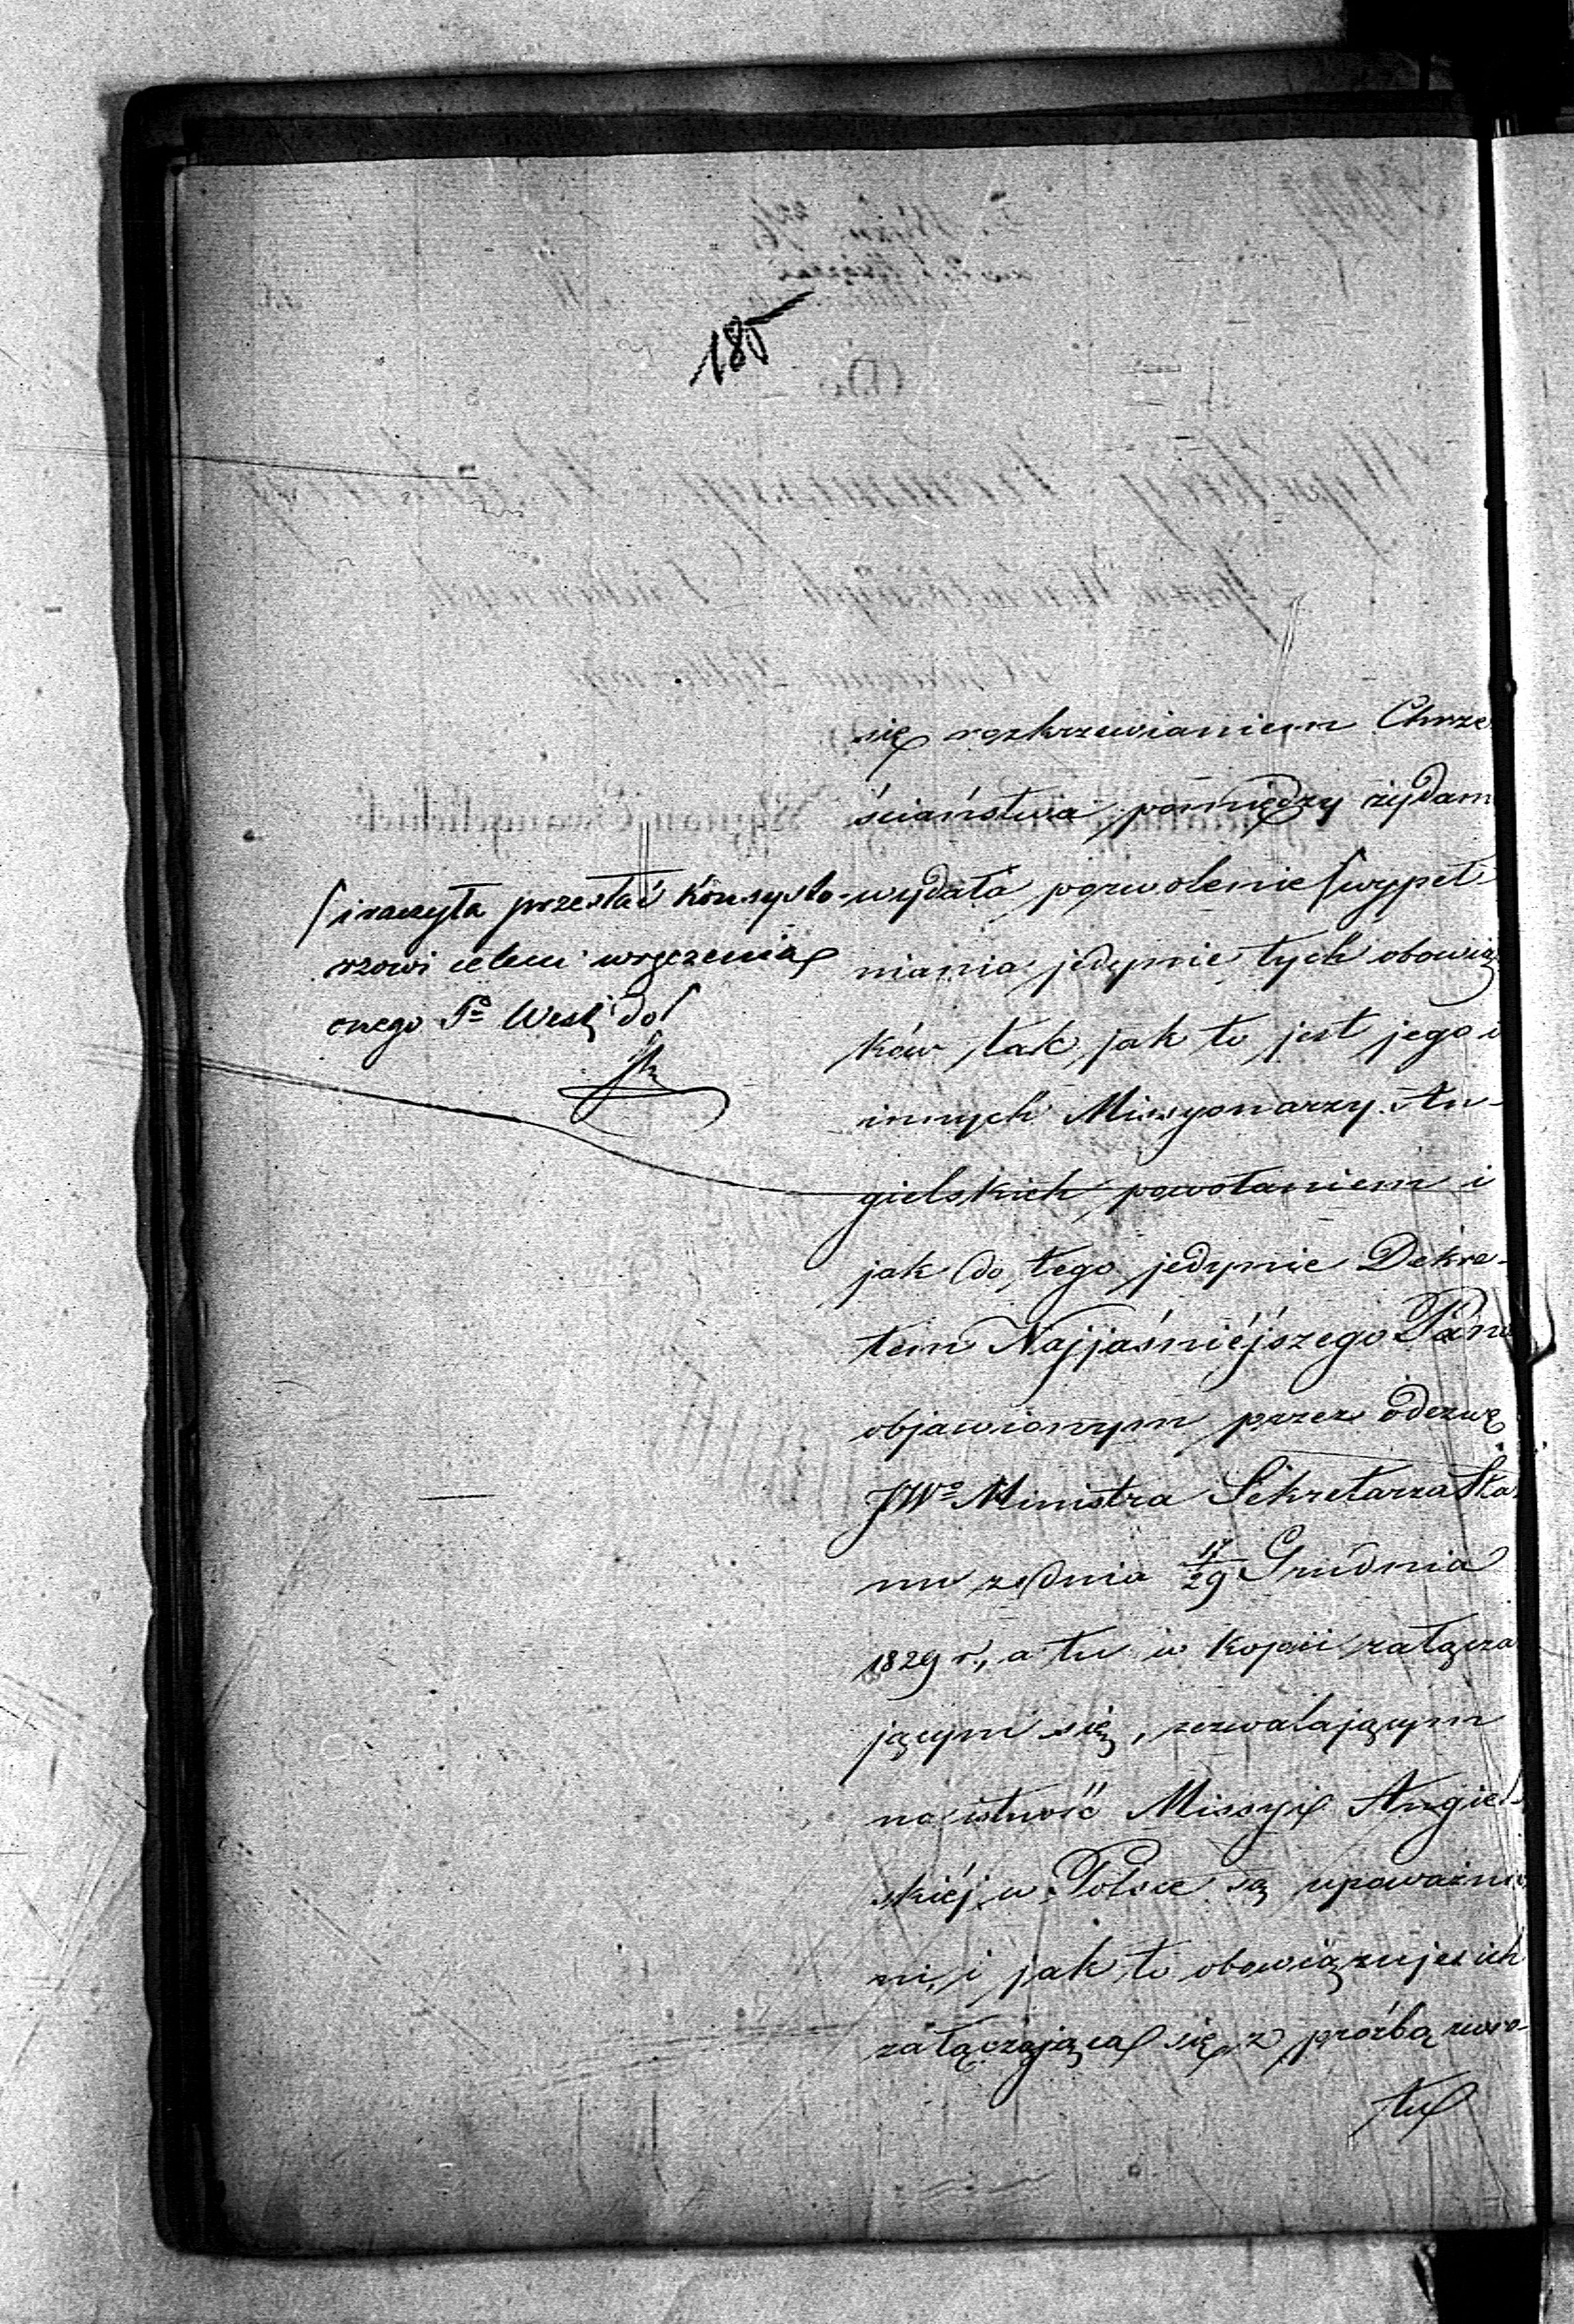 185
się rozkrzewianiem Chrze
ściaństwa pomiędzy żydam
wydała pozwolenie / wypeł-
niania jedynie tych obowią
ków tak jak to jest jego i
innych Missyonarzy An-
gielskich powołaniem i
jak do tego jedynie Dekre-
tem Najjaśniéjszego Pana
objawionym przez odezwę
JWº Ministra Sekretarza Sta
nu z dnia 17/29 Grudnia
1829 r., a tu w kopii załącza
jącym się, zezwalającym
na istność Missyi Angiel-
skiéj w Polsce są upoważnie
ni, i jak to obowiązuje ich
załączająca się z prośbą zwro-
tu
/ i raczyła przesłać Konsysto-
rzowi celem wręczenia
onego Pº West do /